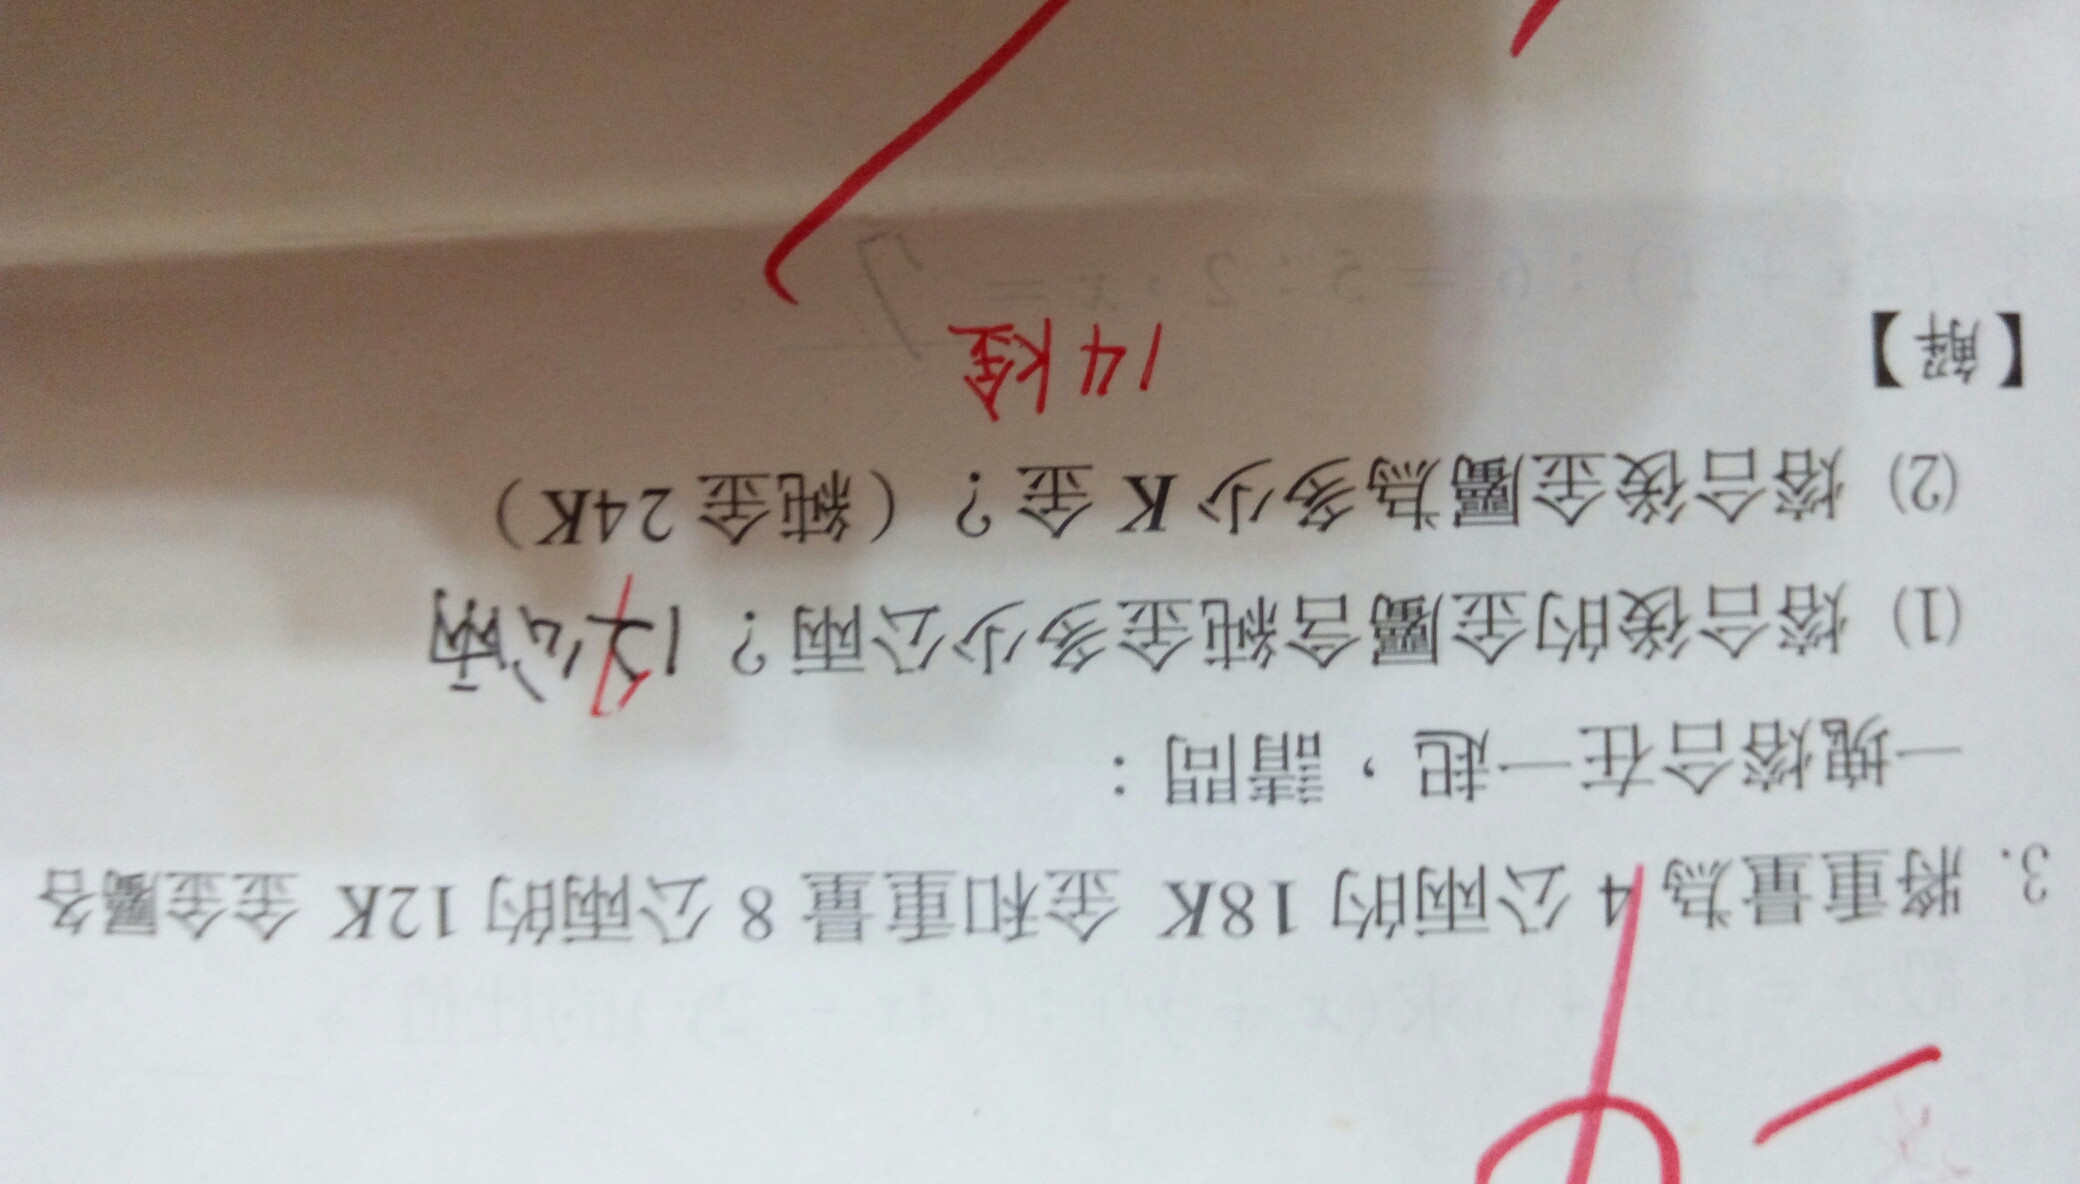 3. 將重量為 4 公兩的 18K 金和重量 8 公兩的 12K 金金屬各
一塊熔合在一起，請問：
(1) 熔合後的金屬含純金多少公兩？12公兩
(2) 熔合後金屬為多少 K 金？（純金 24K）
14K金
【解】